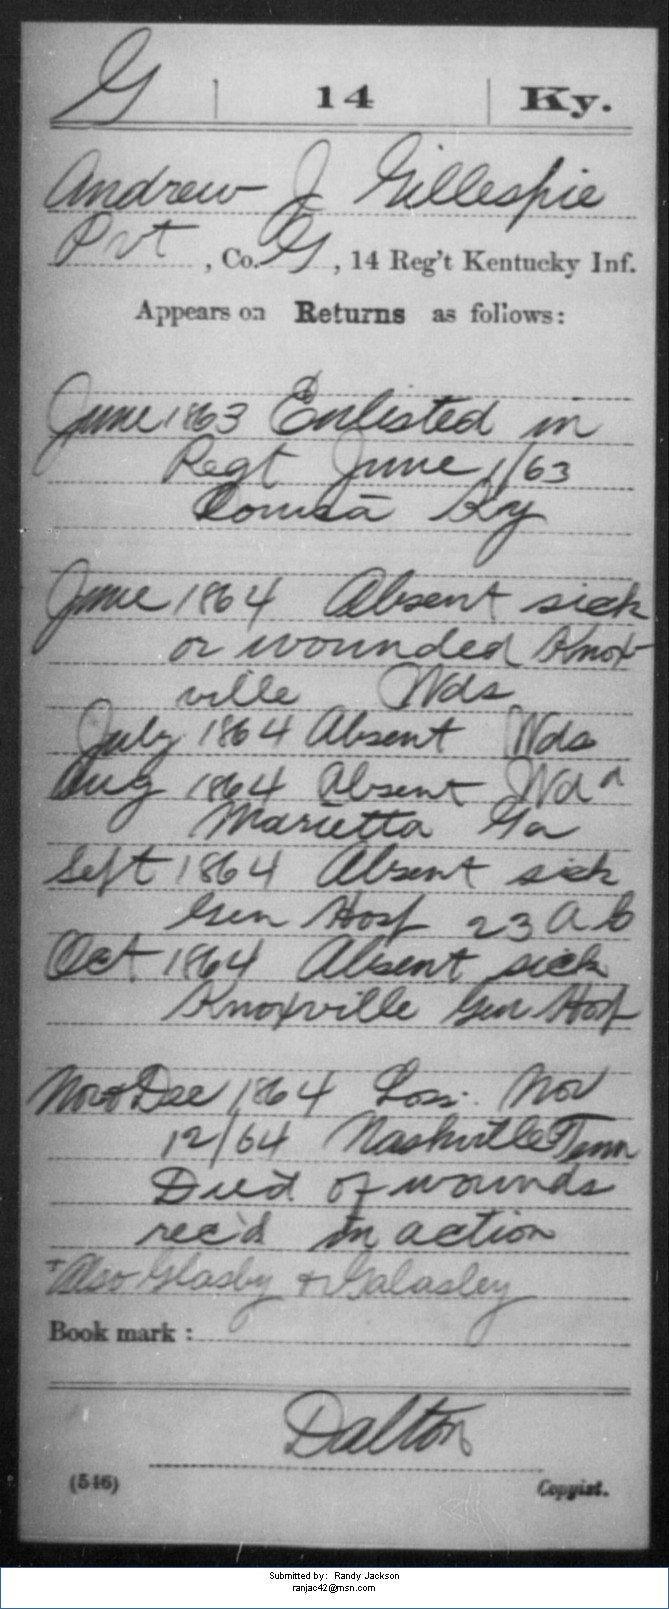 G | 14 | Ky.
Andrew J Gillespie
Pvt, Co. G, 14 Reg't Kentucky Inf.
Appears on Returns as follows:
June 1863 Enlisted in
Regt June 1/63
Louisa Ky
June 1864 Absent sick
or wounded Knox-
ville Wds
July 1864 Absent Wds
Aug 1864 Absent Wdd
Marietta Ga
Sept 1864 Absent sick
Gen Hosp 23 A C
Oct 1864 Absent sick
Knoxville Gen Hosp
Nov & Dec 1864 Loss. Nov
12/64 Nashville Tenn
Died of wounds
rec'd in action
+Also Glasby & Galasley
Book mark:
Dalton
(546) Copyist.
Submitted by: Randy Jackson
ranjac42@msn.com